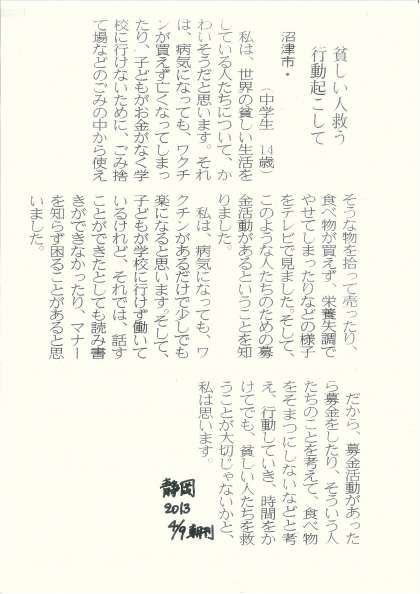 貧しい人救う
行動起こして
沼津市・
(中学生 14歳)
私は、世界の貧しい生活を
している人たちについて、か
わいそうだと思います。それ
は、病気になっても、ワクチ
ンが買えず亡くなってしまっ
たり、子どもがお金がなく学
校に行けないために、ごみ捨
て場などのごみの中から使え
そうな物を拾って売ったり、
食べ物が買えず、栄養失調で
やせてしまったりなどの様子
をテレビで見ました。そして、
このような人たちのための募
金活動があるということを知
りました。
私は、病気になっても、ワ
クチンがあるだけで少しでも
楽になると思います。そして、
子どもが学校に行けず働いて
いるけれど、それでは、話す
ことができたとしても読み書
きができなかったり、マナー
を知らず困ることがあると思
いました。
だから、募金活動があった
ら募金をしたり、そういう人
たちのことを考えて、食べ物
をそまつにしないなどと考
え、行動していき、時間をか
けてでも、貧しい人たちを救
うことが大切じゃないかと、
私は思います。
静岡
2013
4/9 朝刊